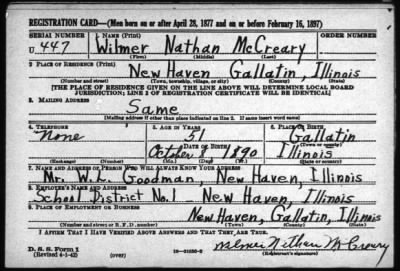 REGISTRATION CARD—(Men born on or after April 28, 1877 and on or before February 16, 1897)
SERIAL NUMBER 1. NAME (Print) ORDER NUMBER
U 447 Wilmer Nathan McCreary
(First) (Middle) (Last)
2. PLACE OF RESIDENCE (Print)
New Haven Gallatin, Illinois
(Number and street) (Town, township, village, or city) (County) (State)
[THE PLACE OF RESIDENCE GIVEN ON THE LINE ABOVE WILL DETERMINE LOCAL BOARD
JURISDICTION; LINE 2 OF REGISTRATION CERTIFICATE WILL BE IDENTICAL]
3. MAILING ADDRESS
Same
[Mailing address if other than place indicated on line 2. If same insert word same]
4. TELEPHONE 5. AGE IN YEARS 6. PLACE OF BIRTH
None 51 Gallatin
DATE OF BIRTH (Town or county)
October 8 1890 Illinois
(Exchange) (Number) (Mo.) (Day) (Yr.) (State or country)
7. NAME AND ADDRESS OF PERSON WHO WILL ALWAYS KNOW YOUR ADDRESS
Mr. W. L. Goodman, New Haven, Illinois
8. EMPLOYER'S NAME AND ADDRESS
School District No. 1 New Haven, Illinois
9. PLACE OF EMPLOYMENT OR BUSINESS
New Haven, Gallatin, Illinois
(Number and street or R. F. D. number) (Town) (County) (State)
I AFFIRM THAT I HAVE VERIFIED ABOVE ANSWERS AND THAT THEY ARE TRUE.
D. S. S. Form 1
(Revised 4-1-42) (over) Wilmer Nathan McCreary
(Registrant's signature)